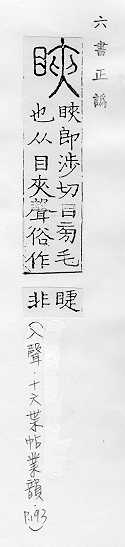 六書正譌
䀹
䀹即涉切目旁毛
也从目夾聲俗作
睫
非
(入聲.十六葉帖業韻P.93)